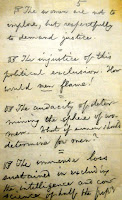 The women are not to
implore, but respectfully
to demand justice
The injustice of this
political exclusion. How
would men flame.
The audacity of deter-
mining the sphere of wo-
men. What if women should
determine for men.
The immense loss
sustained in excluding
the intelligence and con-
science of half the